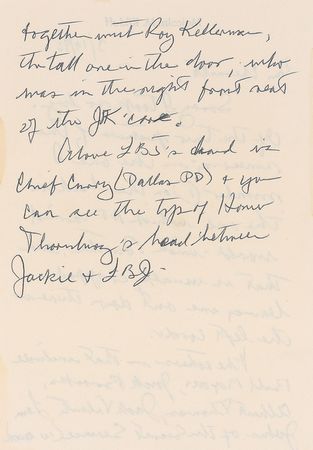 together with Roy Kellerman,
the tall one in the door, who
was in the right front seat
of the JFK care.
Above LBJ's hand is
Chief Curry (Dallas PD) + you
can see the top of Homer
Thornberry's head between
Jackie + LBJ.